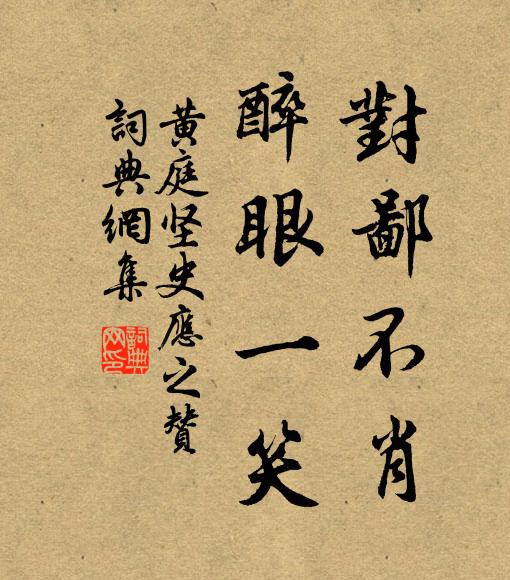 對鄙不肖
醉眼一笑
黄庭坚史應之贊
詞典網集
詞典網印